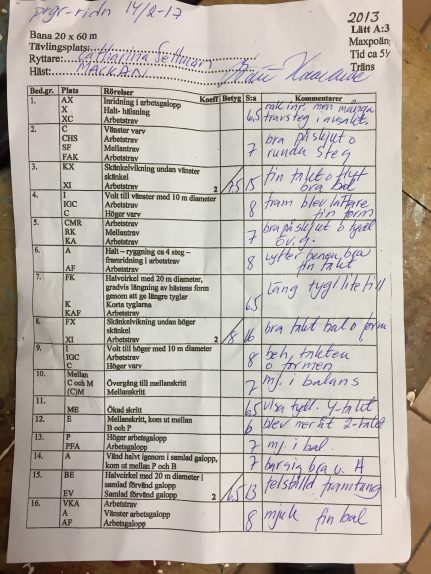 prgr-ridn 14/2-17
2013
Bana 20 x 60 m
Lätt A:3
Tävlingsplats:
Maxpoän
Ryttare: Catharina
Tid ca 5½
Häst: MACKAN
Träns
Bed.gr. Plats Rörelser Koeff Betyg S:a Kommentarer
1. AX Inridning i arbetsgalopp
X Halt- hälsning
XC Arbetstrav 6,5 rak inr. men många travsteg i avsakt.
2. C Vänster varv
CHS Arbetstrav
SF Mellantrav
FAK Arbetstrav 7 bra påskjut o runda steg
3. KX Skänkelvikning undan vänster skänkel
XI Arbetstrav 2 7,5 15 fin takt o flyt bra bal
4. I Volt till vänster med 10 m diameter
IGC Arbetstrav
C Höger varv 8 fram blev lättare fin form
5. CMR Arbetstrav
RK Mellantrav
KA Arbetstrav 7 bra påskjut o tydl öv.g.
6. A Halt – ryggning ca 4 steg – framridning i arbetstrav
AF Arbetstrav 8 lyfter benen, bra fin takt
7. FK Halvcirkel med 20 m diameter, gradvis längning av hästens form genom att ge längre tyglar
K Korta tyglarna
KAF Arbetstrav 6,5 läng tygl lite till
8. FX Skänkelvikning undan höger skänkel
XI Arbetstrav 2 8 16 bra takt bal o form
9. I Volt till höger med 10 m diameter
IGC Arbetstrav
C Höger varv 8 beh. takten o formen
10. Mellan C och M Övergång till mellanskritt
(C)M Mellanskritt 7 mj. i balans
11. ME Ökad skritt 6,5 visa tydl. 4-takt
12. E Mellanskritt, kom ut mellan B och P 6 blev mer åt 2-takt
13. P Höger arbetsgalopp
PFA Arbetsgalopp 7 mj. i bal.
14. A Vänd halvt igenom i samlad galopp, kom ut mellan P och B 7 bär sig bra v. A
15. BE Halvcirkel med 20 m diameter i samlad förvänd galopp
EV Samlad förvänd galopp 2 6,5 13 felställd framtung
16. VKA Arbetstrav
A Vänster arbetsgalopp
AF Arbetsgalopp 8 mjuk fin bal